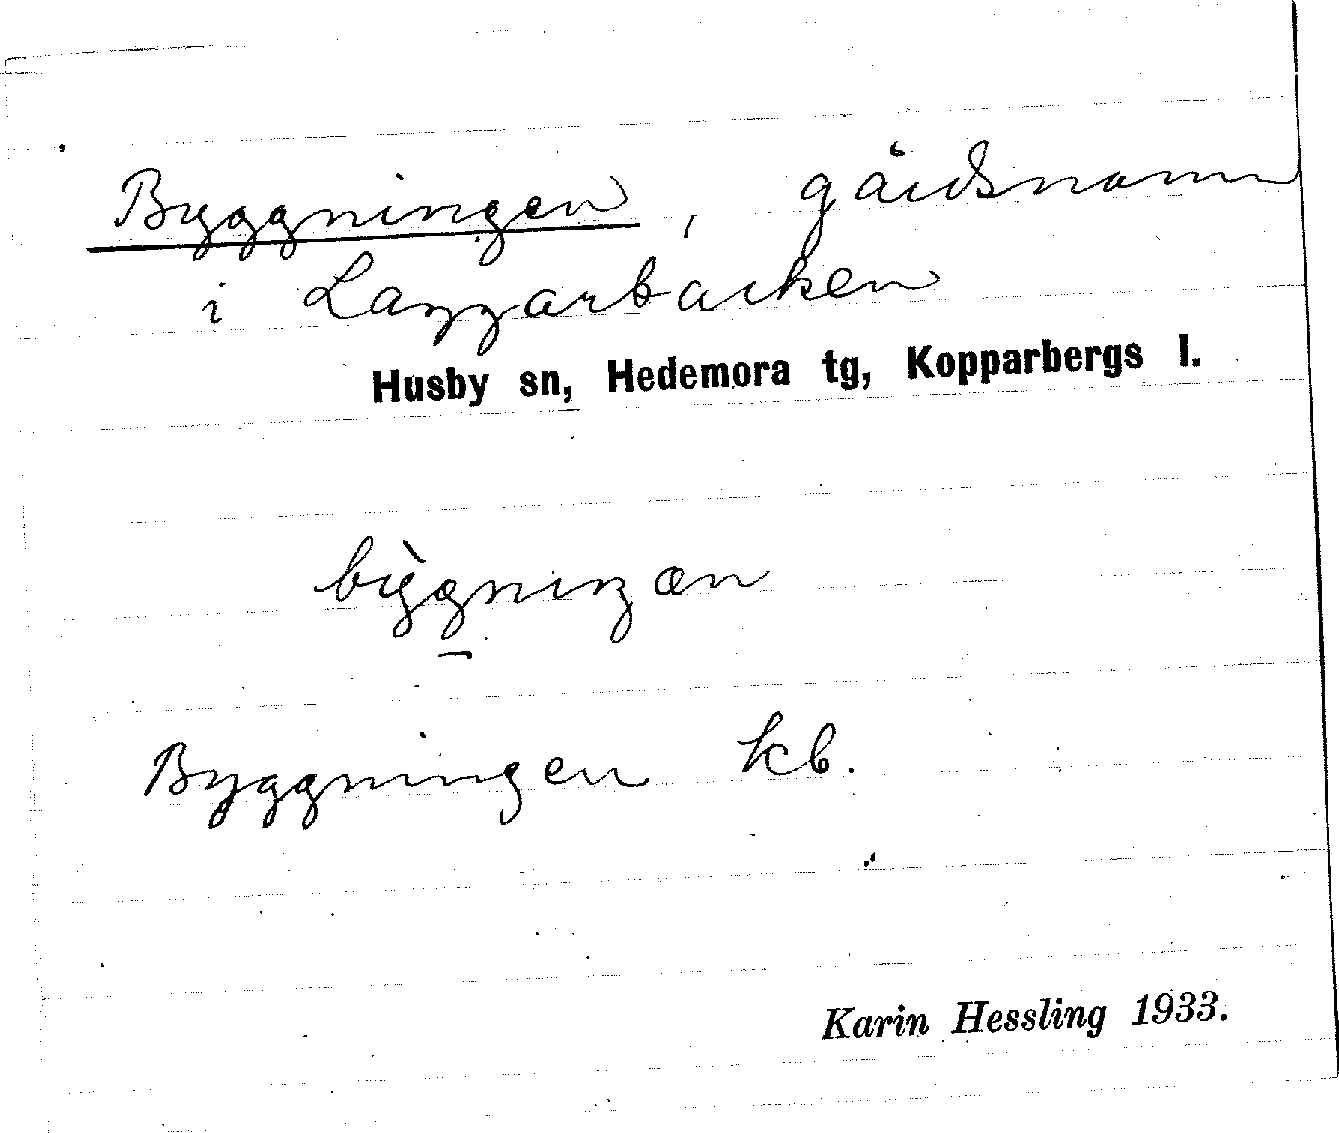 Byggningen, gårdsnamn
i Laggarbacken
Husby sn, Hedemora tg, Kopparbergs l.
bỳgniŋæn
Byggningen kb.
Karin Hessling 1933.